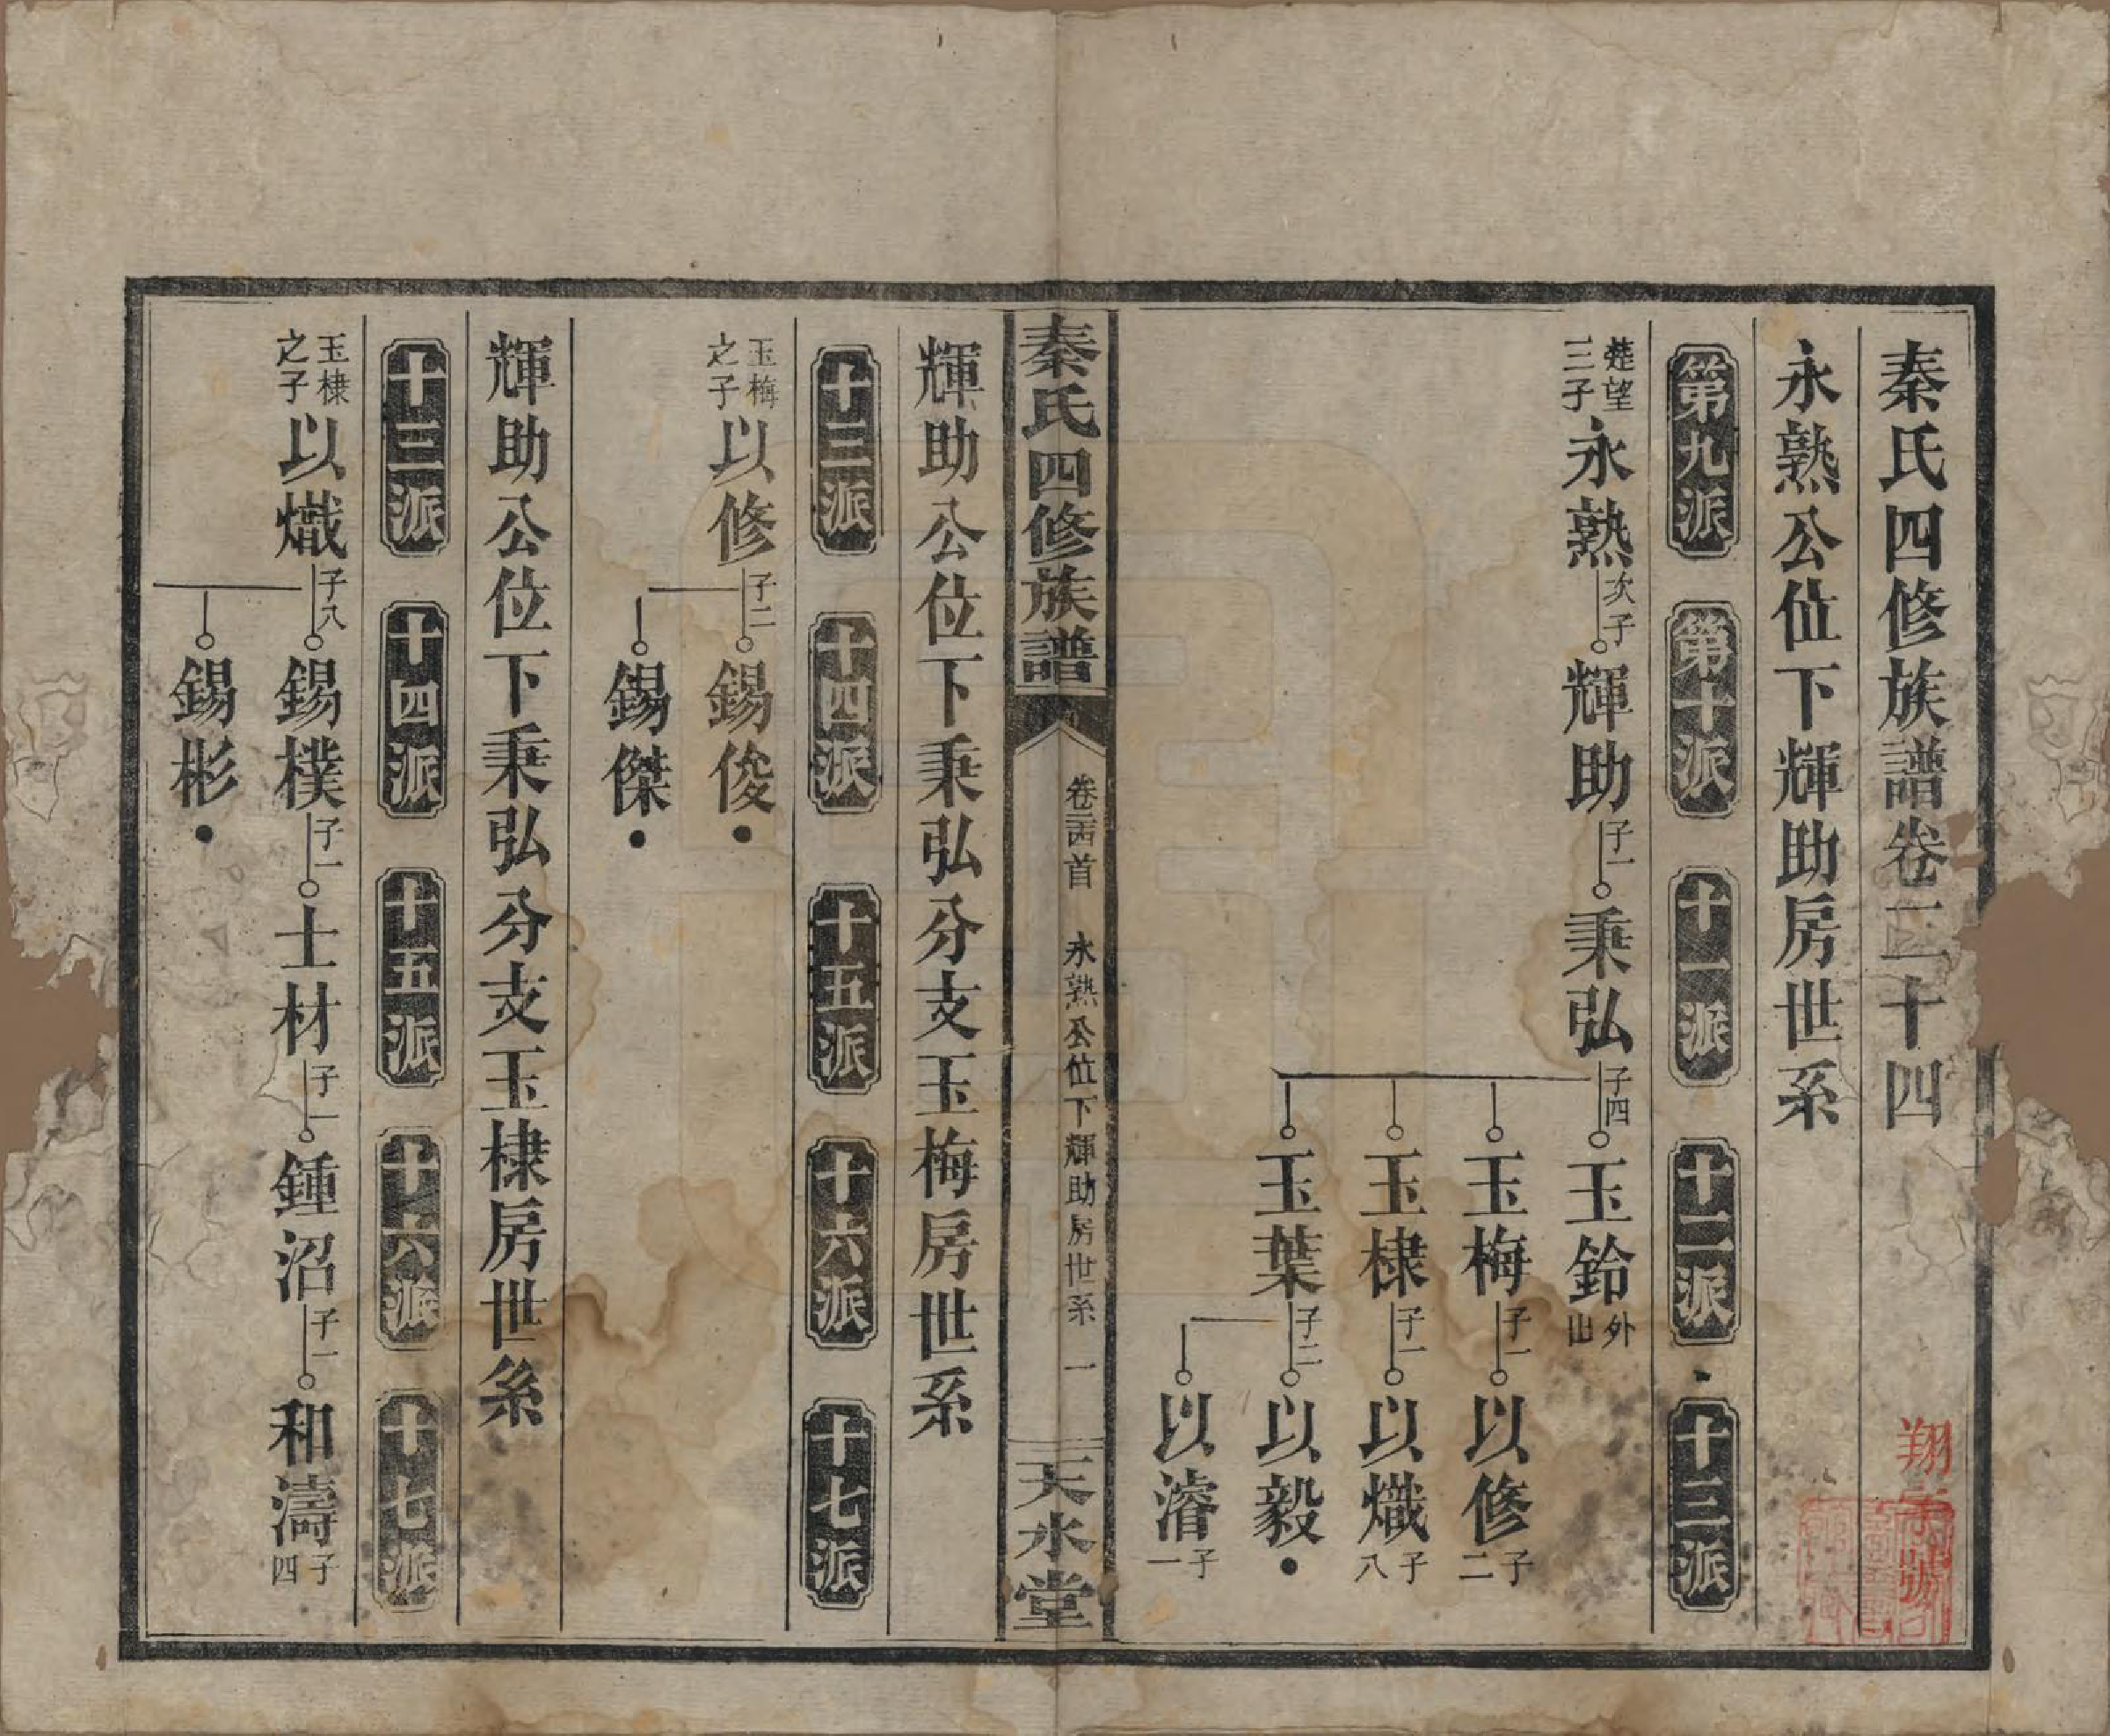 秦氏四修族譜卷二十四
永熟公位下輝助房世系
第九派 第十派 十一派 十二派 十三派
楚望三子 永熟 次子 輝助 子一 秉弘 子四 玉鈴 外出
玉梅 子一 以修 子二
玉棣 子一 以熾 子八
玉葉 子二 以毅
以濬 子一
秦氏四修族譜 卷二十四首 永熟公位下輝助房世系 一 天水堂
輝助公位下秉弘分支玉梅房世系
十三派 十四派 十五派 十六派 十七派
玉梅之子 以修 子二 錫俊
錫傑
輝助公位下秉弘分支玉棣房世系
十三派 十四派 十五派 十六派 十七派
玉棣之子 以熾 子八 錫樸 子一 士材 子一 鍾沼 子一 和濤 子四
錫彬